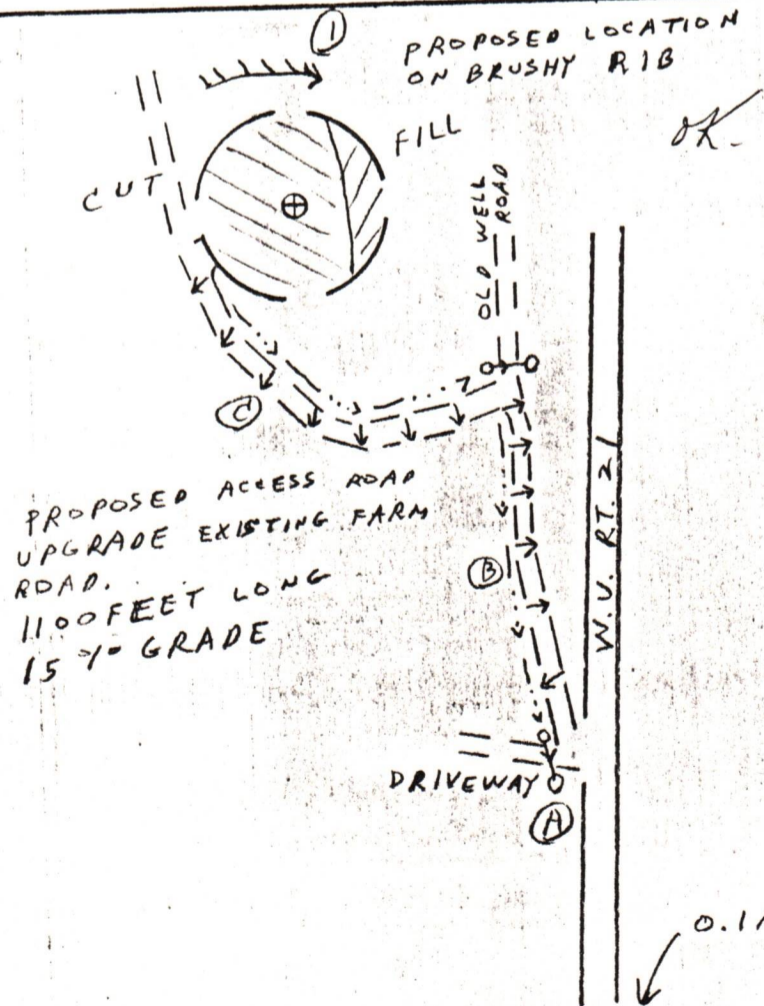 ①
PROPOSED LOCATION
ON BRUSHY RIB
OK.
FILL
CUT
OLD WELL
ROAD
Ⓒ
PROPOSED ACCESS ROAD
UPGRADE EXISTING FARM
ROAD.
1100 FEET LONG
15 % GRADE
Ⓑ
W.V. RT. 21
DRIVEWAY
Ⓐ